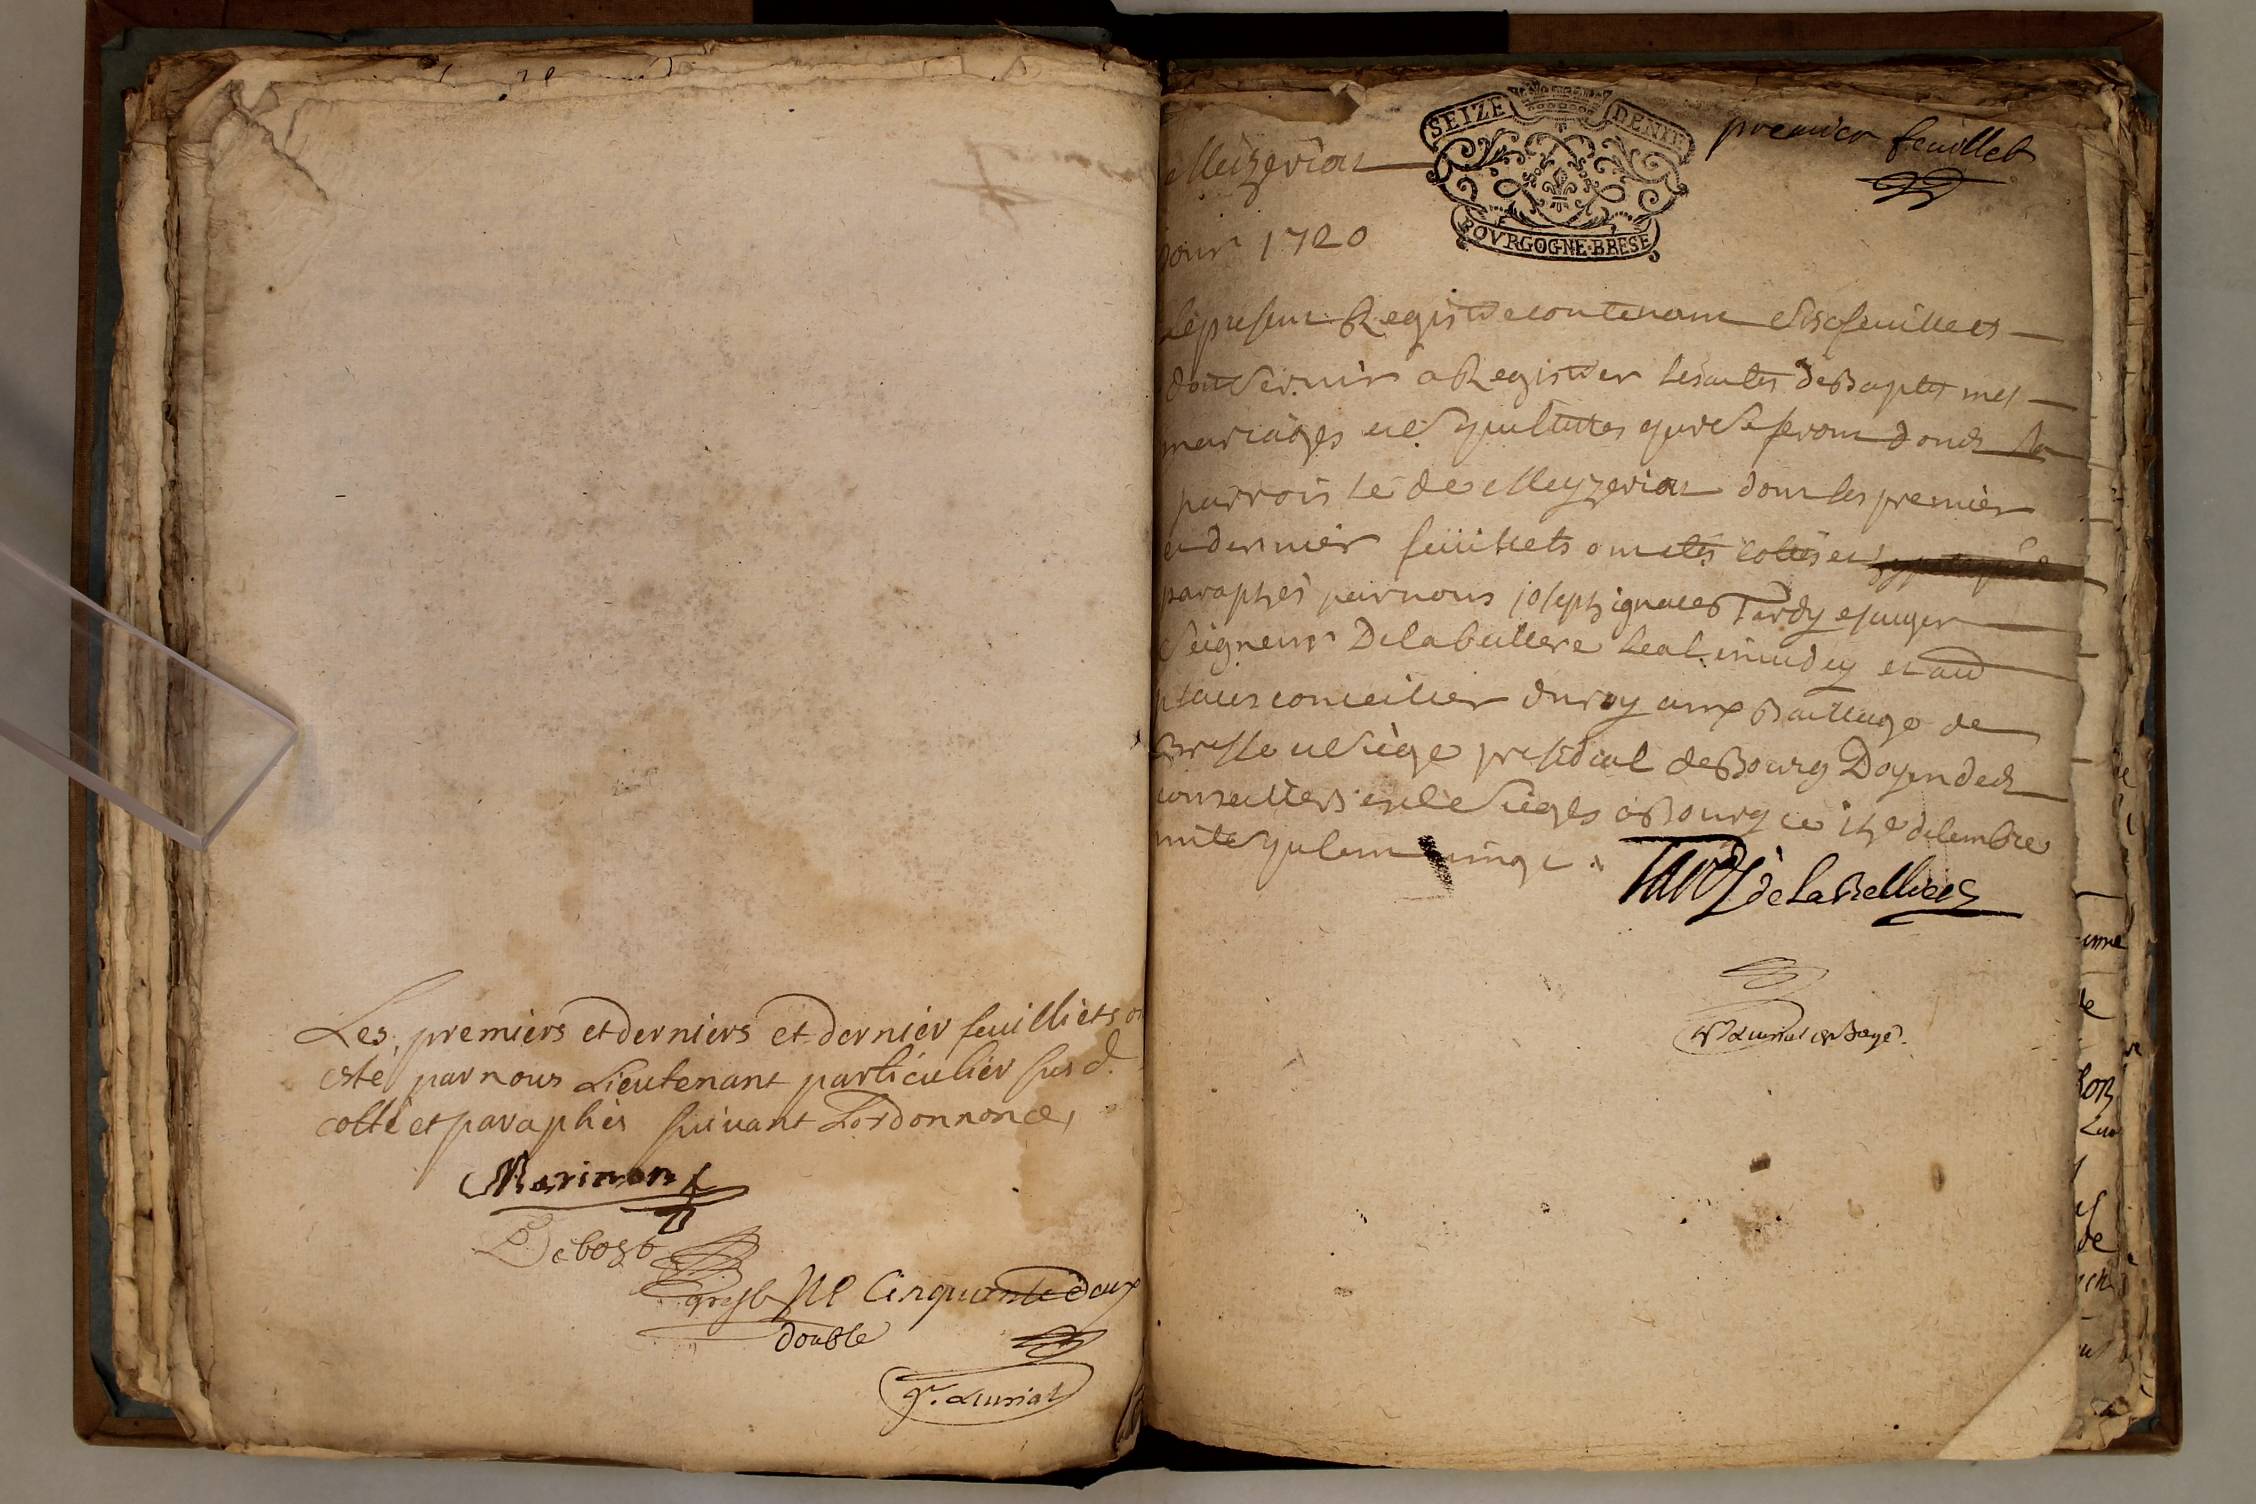 Les premiers et derniers et dernier feuilliets on
esté par nous Lieutenant particulier susd.
collé et paraphés suivant Lordonnance,
Marinon
Debost
Cinquante deux
double
premier feuillet
SEIZE DENIE
BOVRGOGNE·BRESE
Meizeriat
pour 1720
Le present Registre contenant six feuillets
doit servir a Register les actes de Baptesmes
mariages et sepultures qui se feront dans la
parroisse de Meyzeriat dont les premier
et dernier feuillets ont etés cottés et
paraphés par nous joseph ignaces Tardy escuyer
Seigneur Delabeliere et aud
conseiller du roy aux Bailliage de
Bresse et siege presidial de Bourg Doyen des
conseillers esd sieges a Bourg ce decembre
mile sept cent vingt.
Tardy de La Belliere